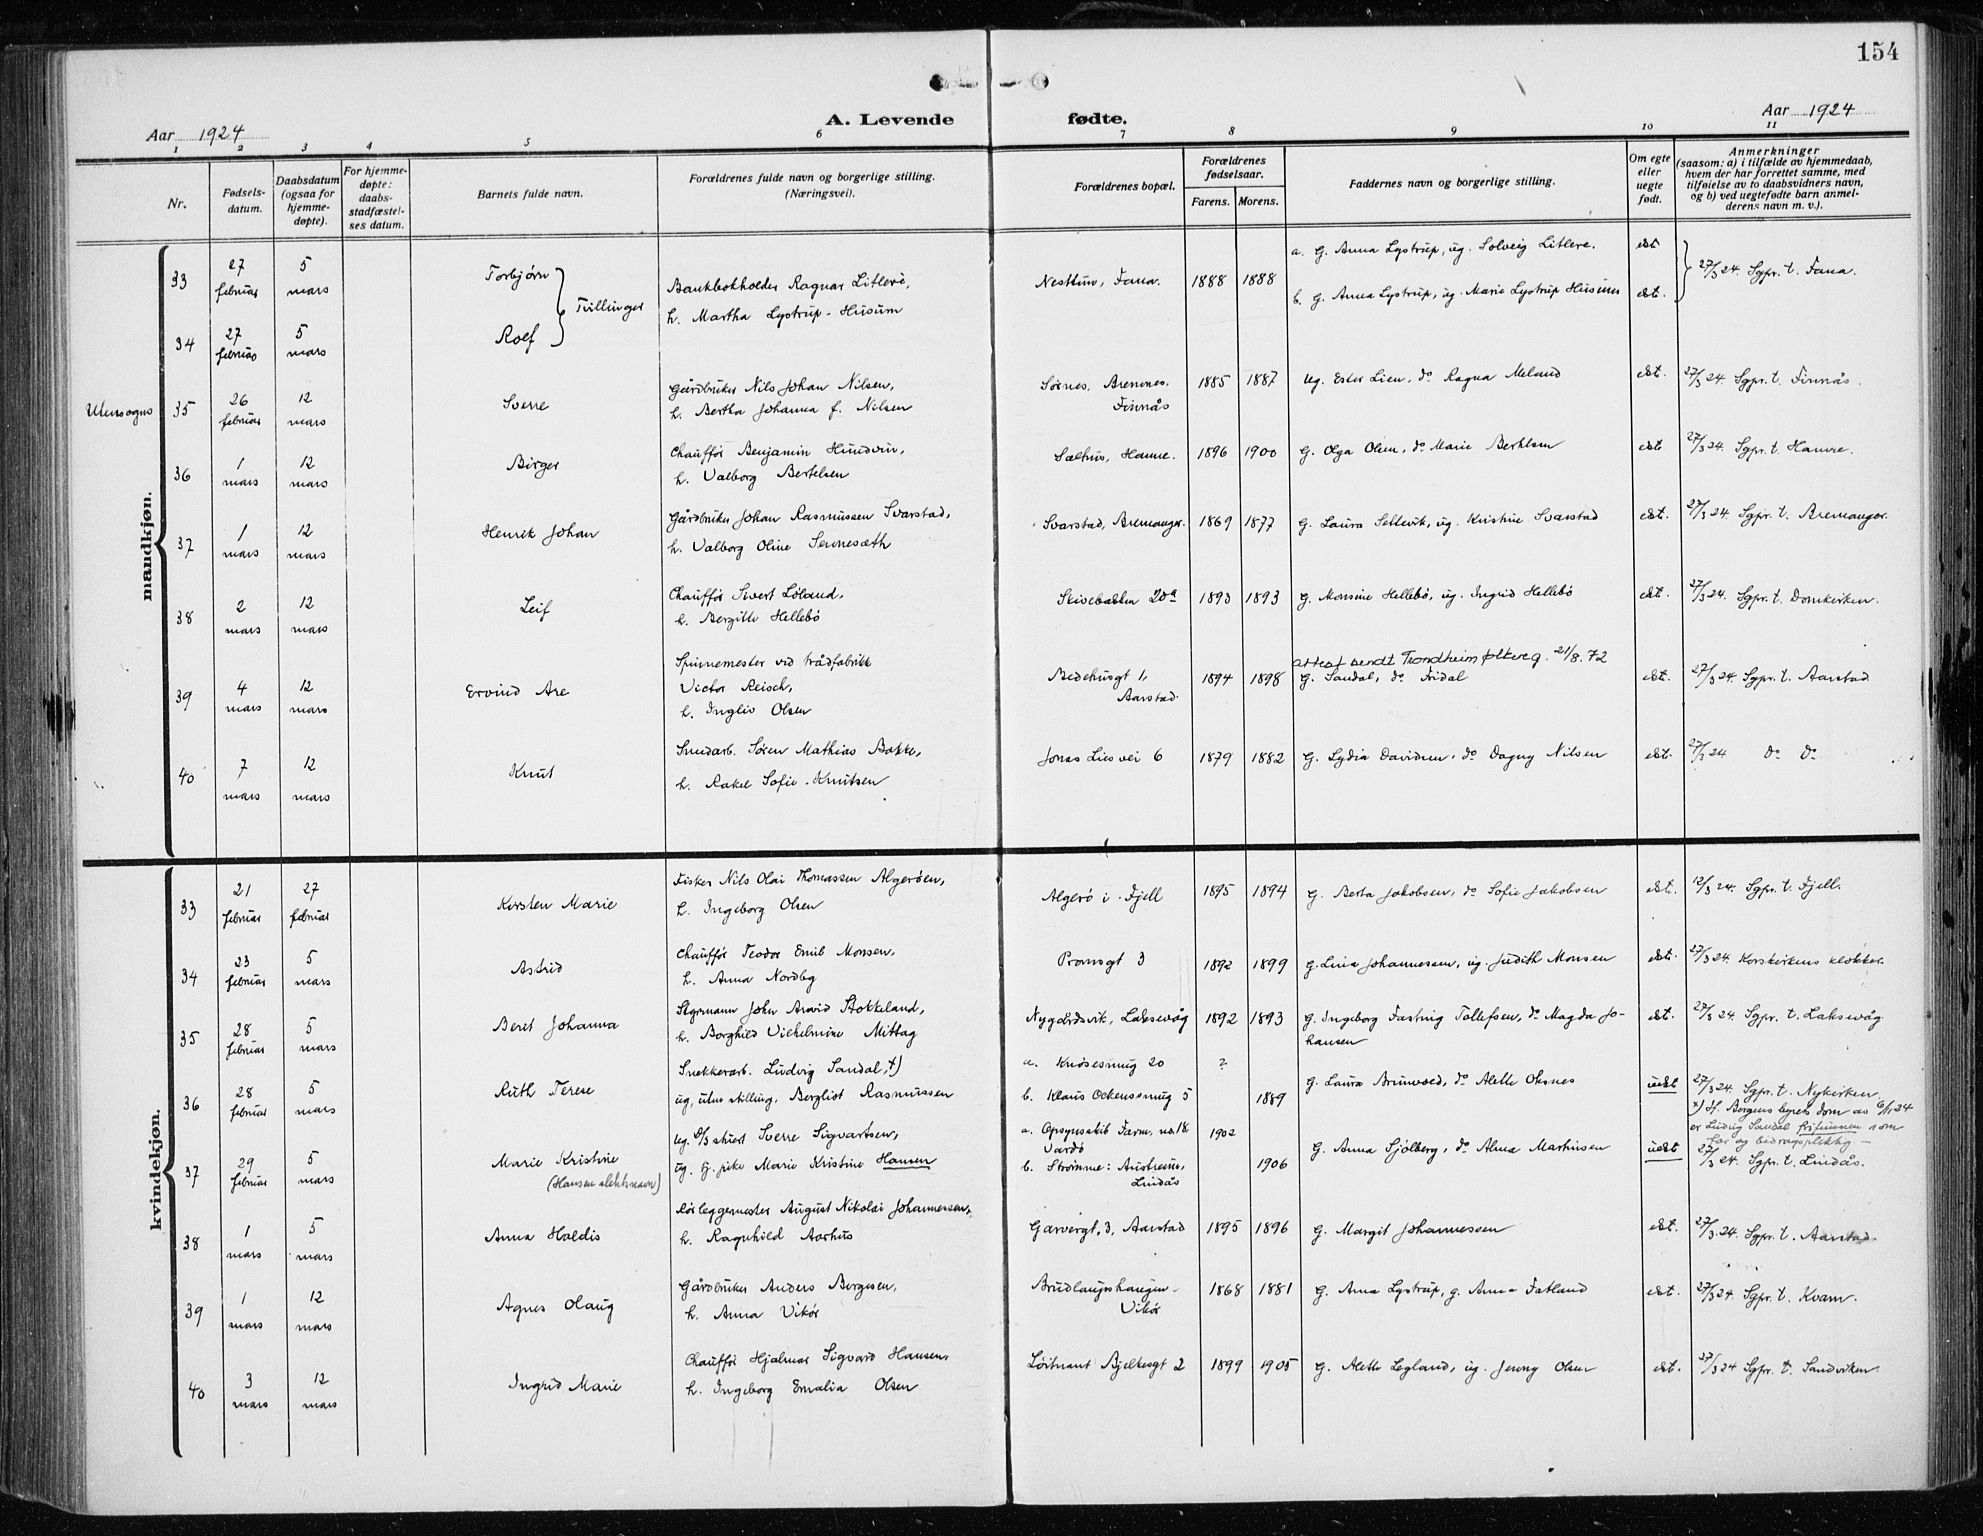 154
Aar 1924
A. Levende fødte.
Aar 1924
1 2 3 4 5 6 7 8 9 10 11
Nr.
Fødsels-
datum.
Daabsdatum
(ogsaa for
hjemme-
døpte).
For hjemme-
døpte:
daabs-
stadfæstel-
ses datum.
Barnets fulde navn.
Forældrenes fulde navn og borgerlige stilling.
(Næringsvei).
Forældrenes bopæl.
Forældrenes
fødselsaar.
Farens. Morens.
Faddernes navn og borgerlige stilling.
Om egte
eller
uegte
født.
Anmerkninger
(saasom: a) i tilfælde av hjemmedaab,
hvem der har forrettet samme, med
tilføielse av to daabsvidners navn,
og b) ved uegtefødte barn anmel-
derens navn m. v.).
mandkjøn.
33 27 februar 5 mars Torbjørn Tvillinger
Bankbokholder Ragnar Litleré,
h. Martha Lystrup-Husum
Nesttun, Fana. 1888 1888
a. G. Anna Lystrup, ug. Solveig Litlere. ekt
b. G. Anna Lystrup, ug. Marie Lystrup Husum ekt.
27/3 24. Sgpr. t. Fana.
34 27 februar 5 mars Rolf
Utensogns 35 26 februar 12 mars Sverre
Gårdbruker Nils Johan Nilsen,
h. Bertha Johanna f. Nilsen
Sørnes, Bremnes,
Finnås
1885 1887 ug. Ester Lien, do Ragna Meland ekt. 27/3 24. Sgpr. t. Finnås.
36 1 mars 12 mars Birger
Chauffør Benjamin Hundvin,
h. Valborg Bertelsen
Salhus, Hamre. 1896 1900 G. Olga Olsen, do Marie Bertelsen ekt 27/3 24. Sgpr. t. Hamre.
37 1 mars 12 mars Henrik Johan
Gårdbruker Johan Rasmussen Svarstad,
h. Valborg Oline Sennesæth
Svarstad, Bremanger. 1869 1877 G. Laura Settevik, ug. Kristine Svarstad ekt. 27/3 24. Sgpr. t. Bremanger.
38 2 mars 12 mars Leif
Chauffør Sivert Løland,
h. Bergitte Hellebø
Skivebakken 20a 1893 1893 G. Monsine Hellebø, ug. Ingrid Hellebø ekt. 27/3 24. Sgpr. t. Domkirken.
39 4 mars 12 mars Ervind Are
Spinnemester ved trådfabrikk
Victor Reisch,
h. Ingliv Olsen
Bedehusgt 1,
Aarstad.
1894 1898
attest sendt Trondheim f 21/8. 72
G. Sandal, do Fridal ekt. 27/3 24. Sgpr. t. Aarstad
40 7 mars 12 mars Knut
Smedarb. Søren Mathias Bakke,
h. Rakel Sofie Knutsen
Jonas Liesvei 6 1879 1882 G. Lydia Davidsen, do Dagny Nilsen ekt. 27/3 24 do do
kvindekjøn.
33 21 februar 27 februar Kirsten Marie
Fisker Nils Olai Thomassen Algerøen,
h. Ingeborg Olsen
Algerø i Fjell 1895 1894 G. Berta Jakobsen, do Sofie Jakobsen ekt. 12/3 24. Sgpr. t. Fjell.
34 23 februar 5 mars Astrid
Chauffør Teodor Emil Monsen,
h. Anna Nordby
Pramsgt 3 1892 1899 G. Lina Johannessen, ug. Judith Monsen ekt. 27/3 24. Korskirkens klokker.
35 28 februar 5 mars Berit Johanna
Styrmann John Arvid Stokkeland,
h. Borghild Vilhelmine Mittag
Nygårdsvik, Laksevåg 1892 1893 G. Ingeborg Fastnig Tollefsen, do Magda Jo-
hansen
ekt. 27/3 24. Sgpr. t. Laksevåg.
36 28 februar 5 mars Ruth Terese
Snekkerarb. Ludvig Sandal, †)
ug, uten stilling, Bergliot Rasmussen
a. Knøsesmug 20 ?
b. Klaus Ockensmug 5 1889
G. Laura Brunvoed, do Alette Oksnes uekt 27/3 24. Sgpr. t. Nykirken.
†) If. Bergens byrets dom av 6/1 24
er Ludvig Sandal frifunnen som
far og bidragspliktig –
37 29 februar 5 mars Marie Kristine
(Hansen slektsnavn)
ug. D/S stuert Sverre Sigvartsen,
ug. tj. pike Marie Kristine Hansen
a. Opsynsskib Farm, no. 18
Vardø
1902
b. Strømme: Austreim,
Lindås
1906
G. Anna Sjølberg, do Alma Martinsen uekt 27/3 24. Sgpr. t. Lindås.
38 1 mars 5 mars Anna Haldis
Rørleggermester August Nikolai Johannessen,
h. Ragnhild Aarhus
Garvergt, 3, Aarstad 1895 1896 G. Margit Johannessen ekt. 27/3. 24. Sgpr. t. Aarstad
39 1 mars 12 mars Agnes Olaug
Gårdbruker Anders Bergesen,
h. Anna Vikør
Brudlaupshaugen
Vikør
1868 1881 G. Anna Lystrup, g. Anna Fatland ekt. 27/3 24. Sgpr. t. Kvam.
40 3 mars 12 mars Ingrid Marie
Chauffør Hjalmar Sigvard Hansen,
h. Ingeborg Emalia Olsen
Løitnant Bjelkesgt 2 1899 1905 G. Alette Legland, ug. Jenny Olsen ekt. 27/3 24 Sgpr. t. Sandviken.